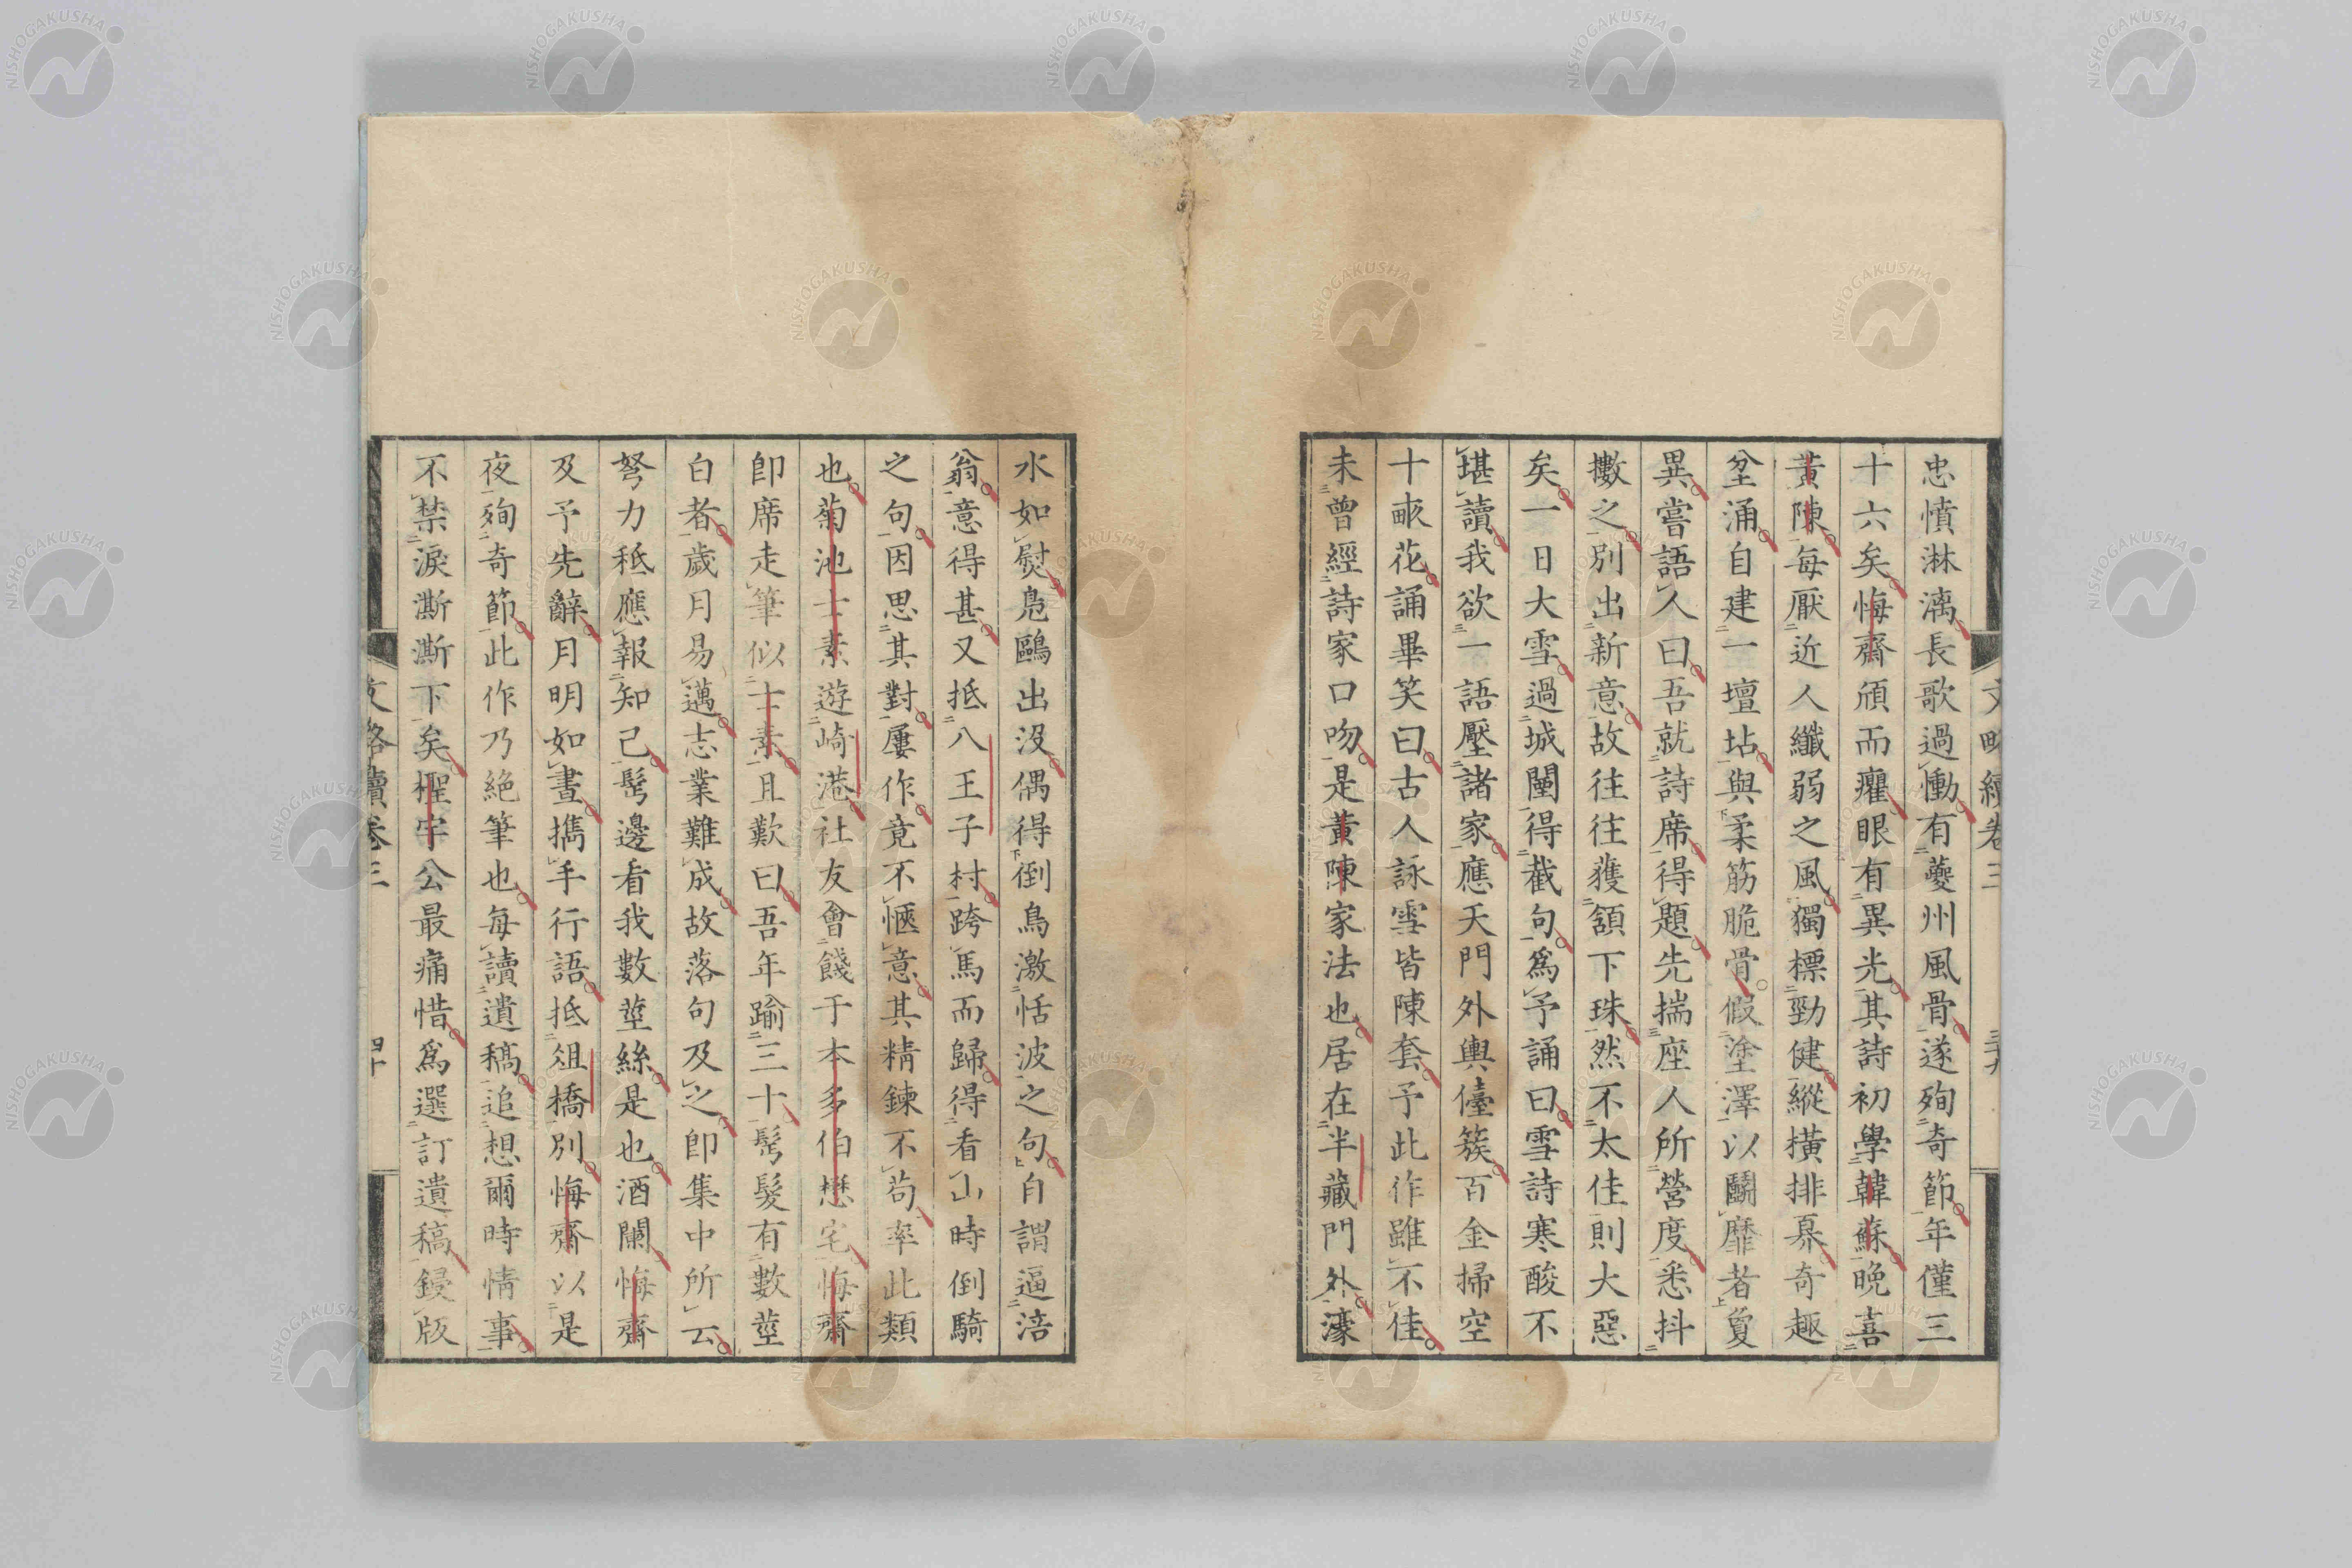 忠憤淋漓長歌過慟有夔州風骨遂殉奇節年僅三
十六矣悔齋頎而癯眼有異光其詩初學韓蘇晚喜
黃陳每厭近人纖弱之風獨標勁健縱橫排奡奇趣
坌涌自建一壇坫與柔筋脆骨假塗澤以鬭靡者負
異嘗語人曰吾就詩席得題先揣座人所營度悉抖
擻之別出新意故往往獲頷下珠然不太佳則大惡
矣一日大雪過城闉得截句為予誦曰雪詩寒酸不
堪讀我欲一語壓諸家應天門外輿儓簇百金掃空
十畝花誦畢笑曰古人詠雪皆陳套予此作雖不佳
未曾經詩家口吻是黃陳家法也居在半藏門外濠
水如熨鳧鷗出沒偶得倒鳥激恬波之句自謂逼涪
翁意得甚又抵八王子村跨馬而歸得看山時倒騎
之句因思其對屢作竟不愜意其精鍊不苟率此類
也菊池士素遊崎港社友會餞于本多伯楙宅悔齋
卽席走筆似士素且歎曰吾年踰三十髩髮有數莖
白者歲月易邁志業難成故落句及之卽集中所云
努力秪應報知己髩邊看我數莖絲是也酒闌悔齋
及予先辭月明如晝攜手行語抵俎橋別悔齋以是
夜殉奇節此作乃絕筆也每讀遺稿追想爾時情事
不禁淚澌澌下矣檉宇公最痛惜為選訂遺稿鋟版
文略續卷三
三十九
文略續卷三
四十
NISHOGAKUSHA